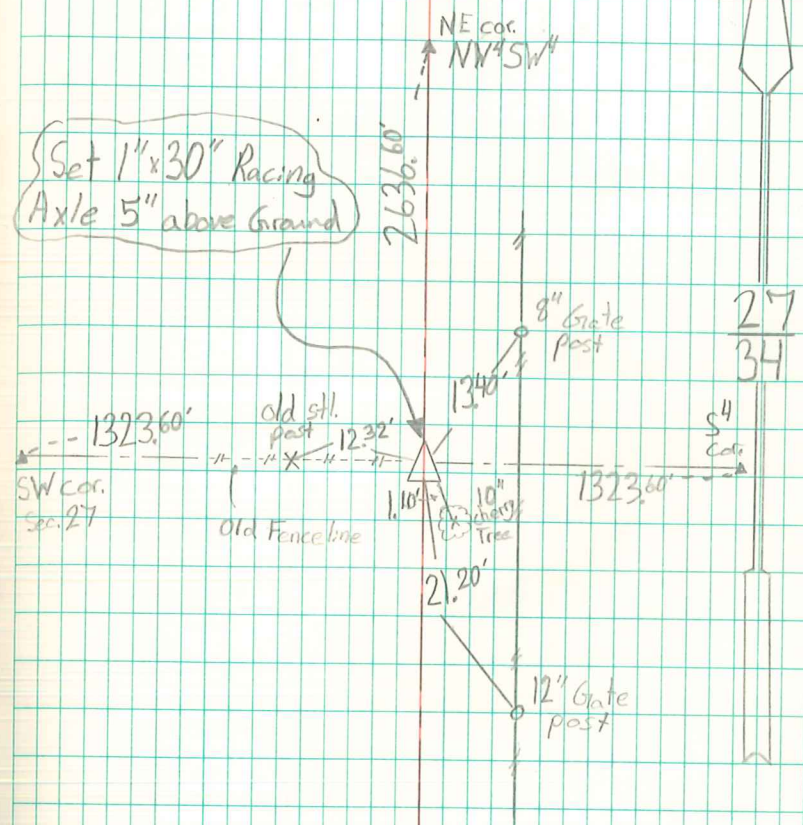 NE cor.
NW⁴SW⁴
2636.60'
Set 1"x30" Racing
Axle 5" above Ground
8" Gate
post
27
34
13.40'
old stl.
post
12.32'
1323.60'
SW cor.
Sec. 27
Old Fenceline
1.10'
10"
cherry
Tree
S⁴
cor.
1323.60'
21.20'
12" Gate
post